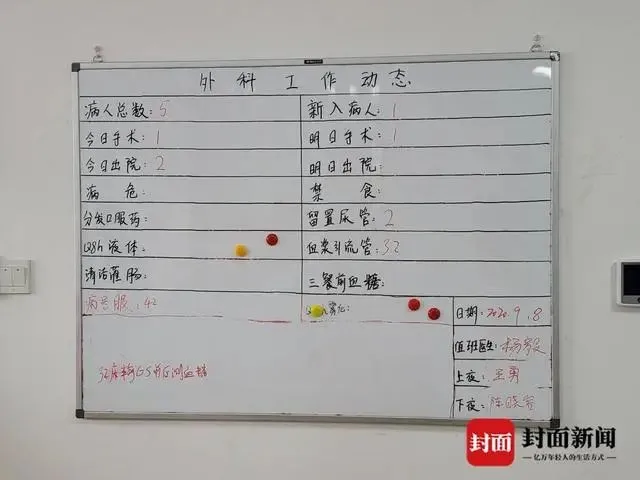 外科工作动态
病人总数: 5
新入病人: 1
今日手术: 1
明日手术: 1
今日出院: 2
明日出院:
病 危:
禁 食:
分发口服药:
留置尿管: 2
Q8h液体:
血浆引流管: 32
清洁灌肠:
三餐前血糖:
病号服: 42
日期: 2020.9.8
值班医生: 杨毅
上夜: 王勇
下夜: 陈
32床 GS 后测血糖
封面
封面新闻
亿万年轻人的生活方式